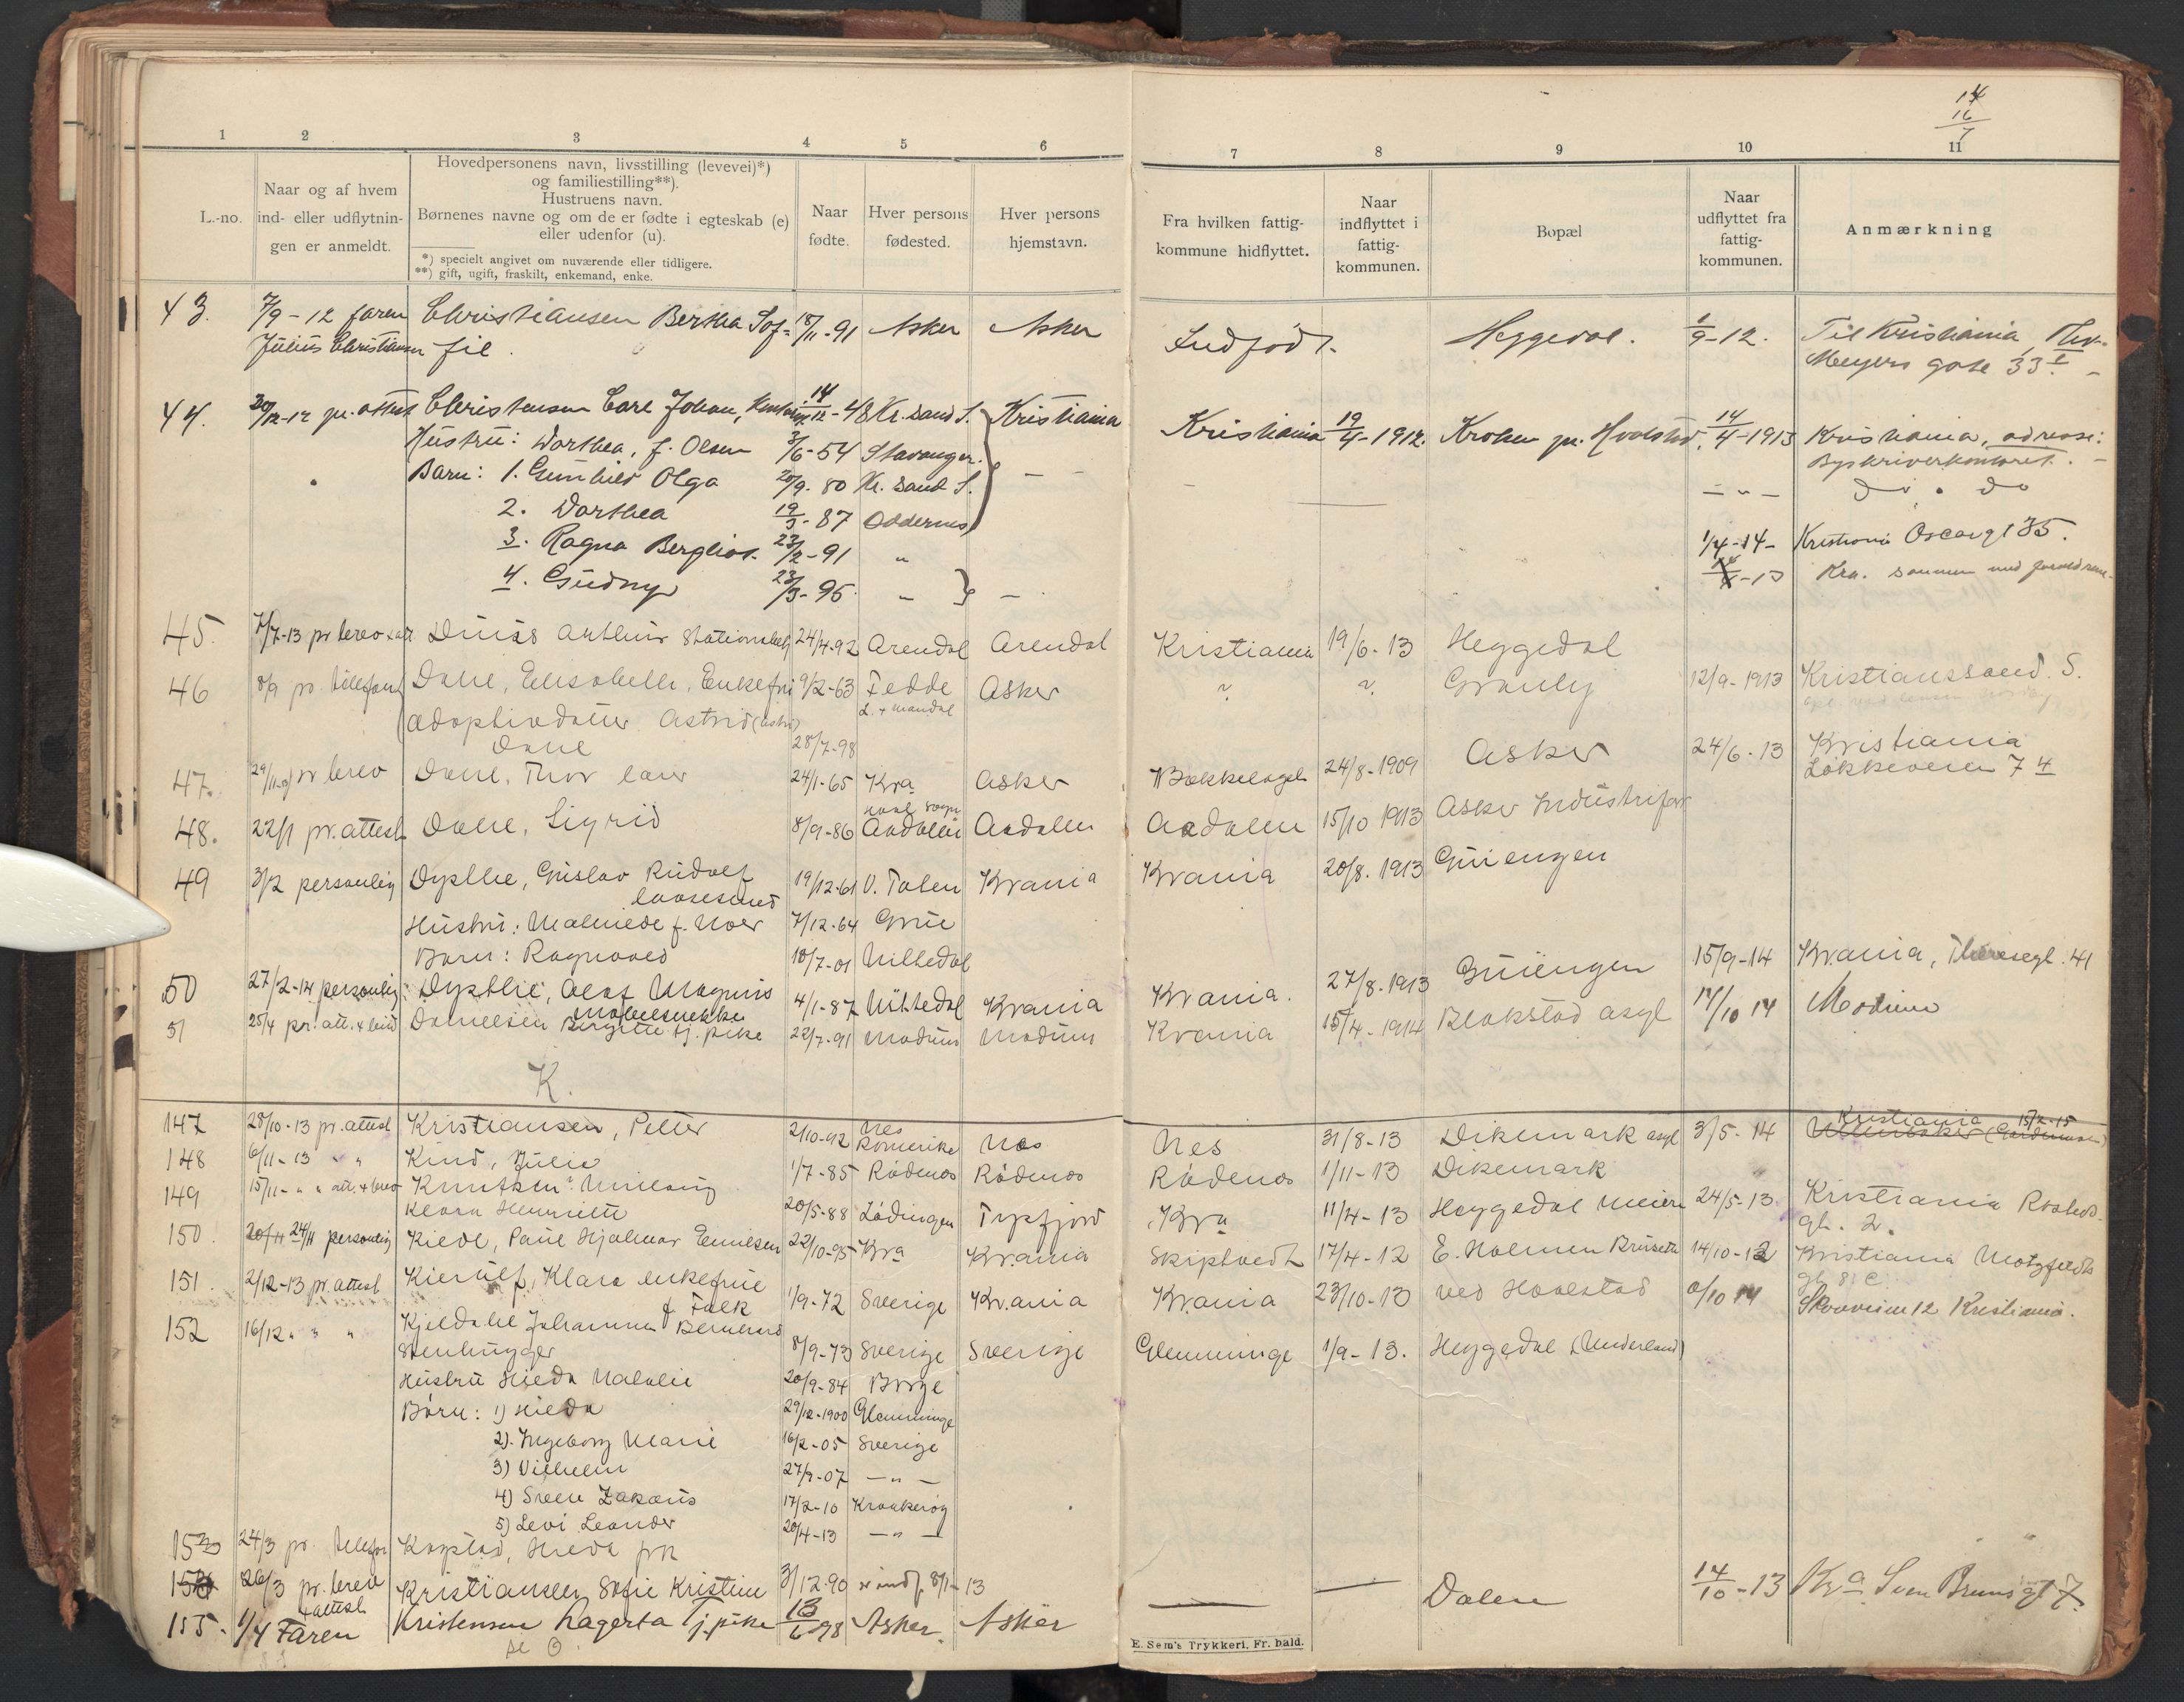 14
16
7
1 2 3 4 5 6 7 8 9 10 11
L.-no.
Naar og af hvem
ind- eller udflytnin-
gen er anmeldt.
Hovedpersonens navn, livsstilling (levevei)*)
og familiestilling**).
Hustruens navn.
Børnenes navne og om de er fødte i egteskab (e)
eller udenfor (u).
*) specielt angivet om nuværende eller tidligere.
**) gift, ugift, fraskilt, enkemand, enke.
Naar
fødte.
Hver persons
fødested.
Hver persons
hjemstavn.
Fra hvilken fattig-
kommune hidflyttet.
Naar
indflyttet i
fattig-
kommunen.
Bopæl
Naar
udflyttet fra
fattig-
kommunen.
Anmærkning
43. 7/9-12 faren Christiansen Bertha Sof= 18/11-91 Asker Asker Indfødt. Heggedal. 1/9-12. Til Kristiania, Thv.
Julius Christiansen fie. Meyers gate 33 I. -
44. 20/12-12 pr. attest Christensen Carl Johan, 14/12-48 Kr.sand S. Kristiania Kristiania 19/4-1912. Kroken pr. Hvalstad. 14/4-1913 Kristiania, adresse:
Hustru: Dorthea, f. Olsen 3/6-54 Stavanger. Byskriverkontoret. -
Barn: 1. Gunhild Olga 20/9-80 Kr. sand S. — — " — do. do
2. Dorthea 19/3-87 Oddernes
3. Ragna Bergliot. 23/2-91 " 1/4-14- Kristiania Oscarsgt 35.
4. Gudny 23/3-95 " — -13 Kra. sammen med forældrene.
45. 7/7-13 pr brev + att. Duus Arthur Stationsbetj 24/4-92 Arendal Arendal Kristiania 19/6-13 Heggedal
46 8/9 pr. telefon Dahl, Elisabeth, Enkefru 9/2-63 Fedde Asker " " Granly 12/9-1913 Kristianssand. S.
L. + Mandal
(Adoptivdatter Astrid
Dahl 28/7-98
47. 29/11 pr brev Dahl, Thor 24/1-65 Kra Asker Bækkelaget 24/8-1909 Asker 24/6-13 Kristiania
Løkkeveien 7 4
48. 22/1 pr. attest Dahl, Sigrid 8/9-86 Aadalen Aadalen Aadalen 15/10 1913 Asker Industrifor
49 3/2 personlig Dyblie, Gustav Rudolf 19/12-61 V. Toten Krania Krania 20/8. 1913 Guiengen
laasesmed
Hustru: Malmede f. Moer 7/12-64 Grue
Barn: Ragnvald 10/7-01 Nittedal
50 27/2-14 personlig Dyblie, Olaf Magnus 4/1-87 Nittedal Krania Krania. 27/8.1913 Guiengen 15/9-14 Kr.ania, Theresegt. 41
møbelsnekker
51 25/4 pr. att. Danielsen Birgitte tj. pike 22/7-91 Modum Modum Krania 15/4-1914 Blakstad asyl 14/10 14 Modum
K.
147 28/10-13 pr.attest Kristiansen, Peller 2/10-92 Nes Romerike Nes Nes 31/8-13 Dikemark asyl 3/5-14 Kristiania 15/2-15
148 6/11-13 " " Kind, Julie 1/7-85 Rødenes Rødenes Rødenes 1/11-13 Dikemark
149 15/11- " " att. + brev Knutsen
Klara Henriette 20/5-88 Lødingen Tysfjord Kra 11/4-13 Heggedal Meieri 24/5-13. Kristiania
gt. 2.
150. 20/11 24/11 personlig Kiedl, Paul Hjalmar Emilsen 22/10-95 Kra Kr.ania Skiptvedt 17/4-12 E. Holmen 14/10-12 Kristiania Motzfeldts
gt 8 C
151. 2/12-13 pr.attest Kierulf, Klara enkefrue
f. Falk 1/9-72 Sverige Kr.ania Kr.ania 23/10-13 ved Hvalstad 9/10 14 Skovveien 12 Kristiania.
152 16/12 " " " Kjeldahl Johannes Bernhard
Stenhugger 8/9-73 Sverige Sverige Glemminge 1/9-13. Heggedal (Underland)
Hustru Hilda Natalie 20/9-84 Borge
Børn: 1) Hilda 29/12-1900 Glemminge
2). Ingeborg Marie 16/2-05 Sverige
3) Vilhelm 27/9-07 — " —
4) Sven Zakaris 17/2-10 Kraakerøy
5) Levi Leander 20/4-13 — " —
153 24/3 pr. telefon Kopstad, Hilda frk
154 26/3 pr. brev Kristiansen Sofie Kristine 3/12-90 indf. 8/1-13
+ attest
155. 1/4 Faren Kristensen Lagerta Tj.pike 13/6-98 Asker. Asker — — Dalen 14/10-13 Kra Sven Bruns gt 7.
E. Sem's Trykkeri, Fr. hald.